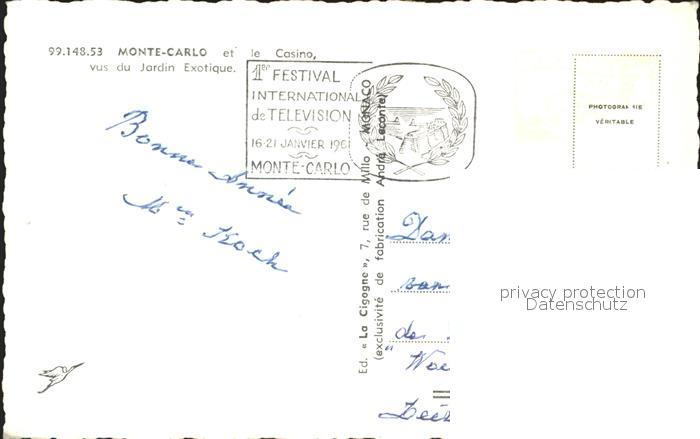 99.148.53 MONTE-CARLO et le Casino,
vus du Jardin Exotique.
1er FESTIVAL
INTERNATIONAL
de TELEVISION
16-21 JANVIER 1961
MONTE-CARLO
PHOTOGRAPHIE
VÉRITABLE
Bonne Année
Mme Koch
Ed. « La Cigogne », 7, rue de Millo - MONACO
(exclusivité de fabrication André Leconte)
privacy protection
Datenschutz
de